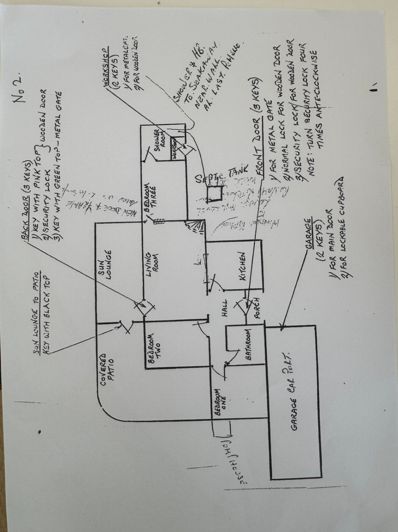 No 2.
WORKSHOP
(2 KEYS)
1/ FOR METAL GATE
2/ FOR WOODEN DOOR
SHOWER & HB.
TO SOAKAWAY
NEAR WALL
BACK DOOR (3 KEYS)
1/ KEY WITH PINK TOP } WOODEN DOOR
2/ SECURITY LOCK
3/ KEY WITH GREEN TOP - METAL GATE
SUN LOUNGE TO PATIO
KEY WITH BLACK TOP
FRONT DOOR (3 KEYS)
1/ FOR METAL GATE
2/ NORMAL LOCK FOR WOODEN DOOR
3/ SECURITY LOCK FOR WOODEN DOOR
NOTE: TURN SECURITY LOCK FOUR
TIMES ANTI-CLOCKWISE
GARAGE
(2 KEYS)
1/ FOR MAIN DOOR
2/ FOR LOCKABLE CUPBOARD
SHOWER
ROOM
BEDROOM
THREE
SEPTIC TANK
SUN
LOUNGE
LIVING
ROOM
KITCHEN
HALL
PORCH
COVERED
PATIO
BEDROOM
TWO
BATHROOM
BEDROOM
ONE
GARAGE CAR PORT.